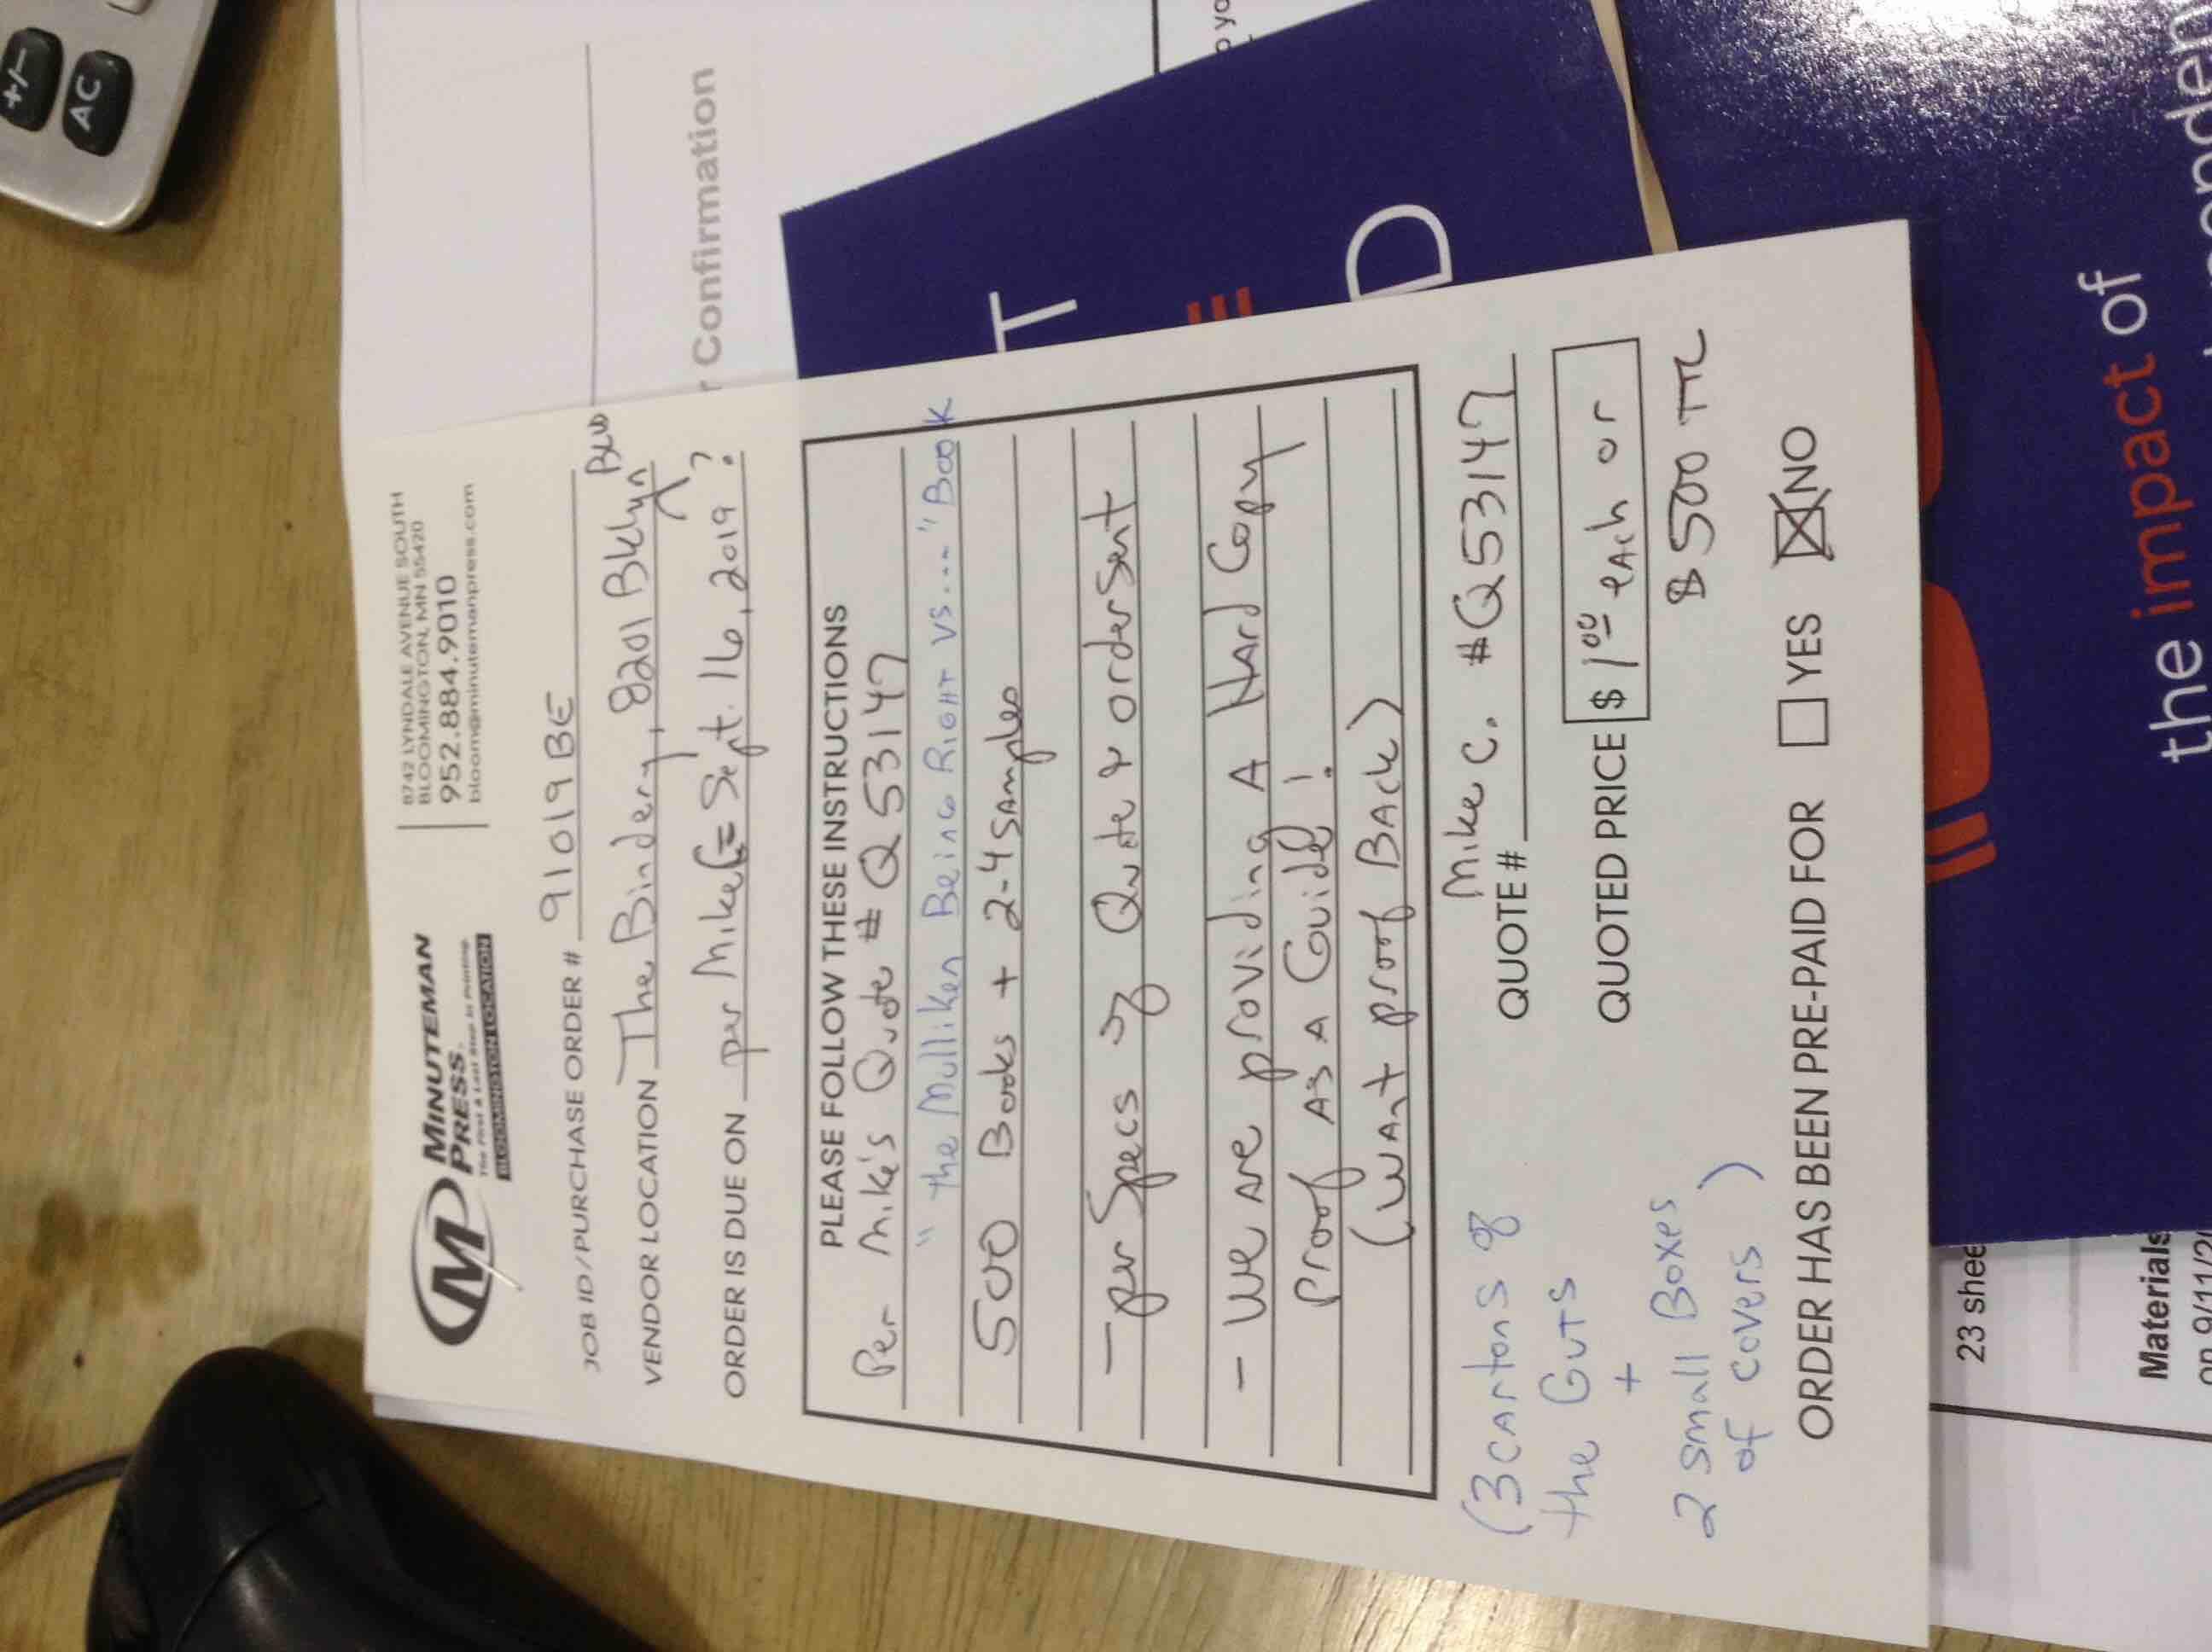 MINUTEMAN
PRESS
The First & Last Stop in Printing
BLOOMINGTON LOCATION
8742 LYNDALE AVENUE SOUTH
BLOOMINGTON, MN 55420
952.884.9010
bloom@minutemanpress.com
JOB ID / PURCHASE ORDER # 91019BE
VENDOR LOCATION The Bindery, 8201 Bklyn BLVD
ORDER IS DUE ON per Mike = Sept. 16, 2019?
PLEASE FOLLOW THESE INSTRUCTIONS
Per Mike's Quote # Q53147
"the Mulliken Being Right vs...." Book
500 Books + 2-4 samples
- per Specs of Quote & order sent
- We are providing A Hard Copy
proof As A Guide!
(want proof BAck)
(3 cartons of
the Guts
+
2 small Boxes
of covers)
Mike C.
QUOTE # #Q53147
QUOTED PRICE $ 1.00 each or
$500 TTL
ORDER HAS BEEN PRE-PAID FOR YES NO
Confirmation
T
D
the impact of
23 shee
Materials
on 9/11/2
+/-
AC